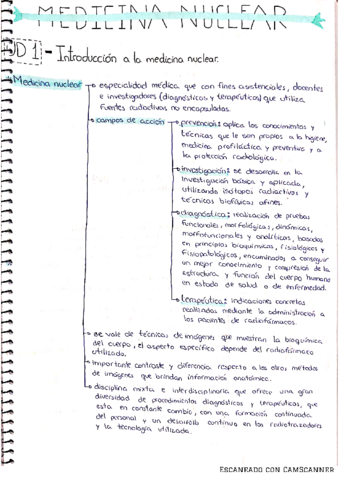 MEDICINA NUCLEAR
UD 1 - Introducción a la medicina nuclear.
Medicina nuclear → especialidad médica que con fines asistenciales, docentes
e investigadores (diagnósticos y terapéuticos) que utiliza
fuentes radiactivas no encapsuladas.
campos de acción → prevención: aplica los conocimientos y
técnicas que le son propios a la higiene,
medicina profiláctica y preventiva y a
la protección radiológica.
investigación: se desarrolla en la
investigación básica y aplicada,
utilizando isótopos radiactivos y
técnicas biofísicas afines.
diagnóstica: realización de pruebas
funcionales, morfológicas, dinámicas,
morfofuncionales y analíticas, basadas
en principios bioquímicos, fisiológicos y
fisiopatológicos, encaminados a conseguir
un mejor conocimiento y comprensión de la
estructura y función del cuerpo humano
en estado de salud o de enfermedad.
terapéutica: indicaciones concretas
realizadas mediante la administración a
los pacientes de radiofármacos.
se vale de técnicas de imágenes que muestran la bioquímica
del cuerpo, el aspecto específico depende del radiofármaco
utilizado.
importante contraste y diferencia respecto a los otros métodos
de imágenes que brindan información anatómica.
disciplina mixta e interdisciplinaria que ofrece una gran
diversidad de procedimientos diagnósticos y terapéuticos, que
esta en constante cambio, con una formación continuada
del personal y un desarrollo continuo en los radiotrazadores
y la tecnología utilizada.
ESCANEADO CON CAMSCANNER